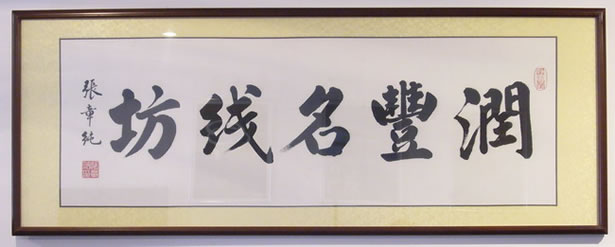 潤豐名线坊
張章純